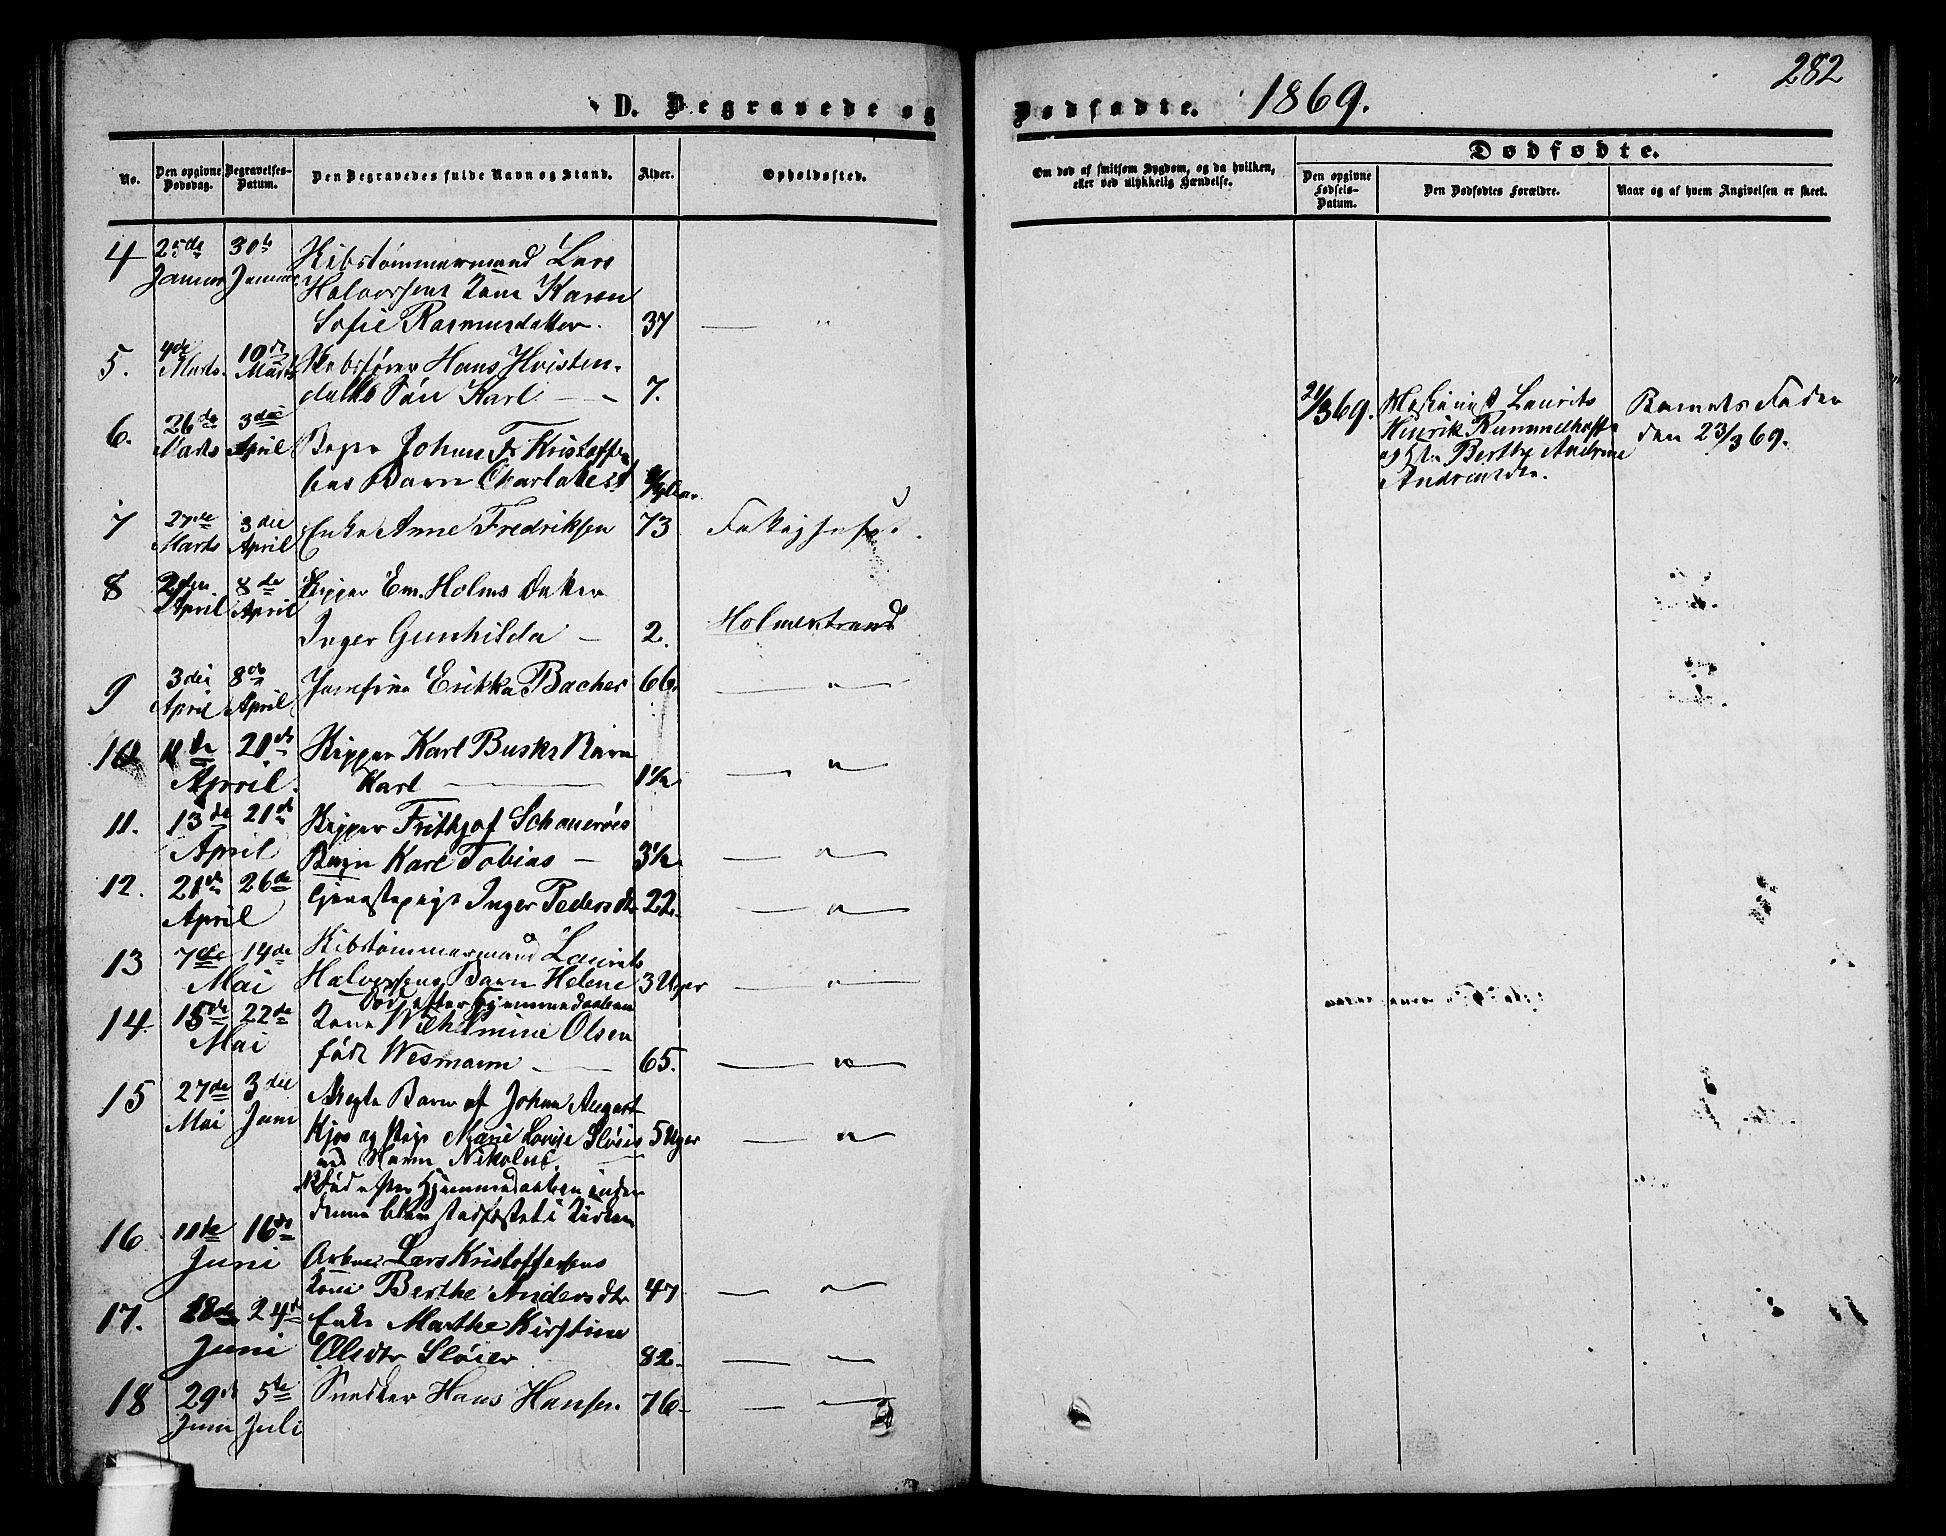 282
D. Begravede og Dødfødte. 1869.
No.
Den opgivne Dødsdag.
Begravelses-Datum.
Den Begravedes fulde Navn og Stand.
Alder.
Opholdssted.
Om død af smitsom Sygdom, og da hvilken, eller ved ulykkelig Hændelse.
Dødfødte.
Den opgivne Fødsels-Datum.
Den Dødfødtes Forældre.
Naar og af hvem Angivelsen er skeet.
4 25de 30te Skibstømmermand Lars
Januar Januar Halvorsens Kone Karen
Sofie Rasmusdatter. 37 — "
5. 4de 10de Skibsfører Hans Hvisten-
Marts. Marts dalks Søn Karl — 7.
6. 26de 3die
Marts April Johan Fr. Kristoffer
Barn
7 27de 3die Enke Anne Fredriksen 73
Marts April
8 2den 8de Skipper Em. Holms Datter
April April
Inger Gunhilda — 2. Holmestrand
9 3die 8de Josefine Erikka Bacher 66. — " —
April April
10 11de 20de Skipper Karl Busks Barn
April. Karl — 1 1/2 — " —
11. 13de 21de Skipper Frithjof Schanerøes
April Barn Karl Tobias — 3 1/2 — " —
12. 21de 26de Tjenestepige Inger Pedersdtr 22. — " —
April
13 7de 14de Skibstømmermand Laurits
Mai Halvorsens Barn Helene 3 Uger — " —
Død efter Hjemmedaaben
14. 15de 22de Kone Wilhelmine Olsen
Mai født Wesmann — 65. — " —
15 27de 3die Uægte Barn af Johan August
Mai Juni Kjøs og Pige Marie Lovise Sløier 5 Uger — " —
ved Navn Nikolus.
Død efter Hjemmedaaben inden
denne blev stadfæstet i Kirken
16 11de 16de
Juni Arbm. Lars Kristoffersens
Kone Berthe Andersdtr 47 — " —
17. 18de 24de Enke Marthe Kirstine
Juni Olsdtr Sløier 82. — " —
18 29de 5te Snedker Hans Hansen. 76 — " —
Juni Juli
21/3 69. Maskinist Laurits
Henrik Rummelhoff
og Hu Berthe Andrine
Andreasdtr.
Barnets Fader
den 23/3 69.